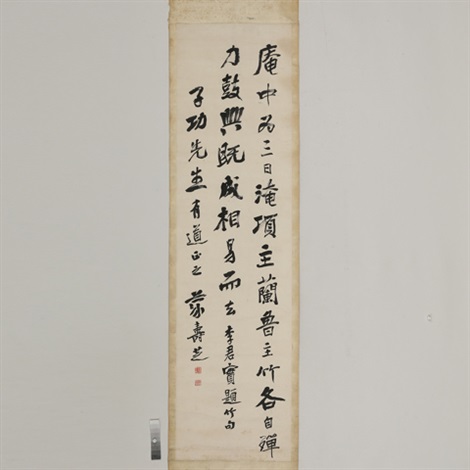 庵中為三日淹項主蘭魯主竹各自殫
力鼓興既成相易而去李君實題竹句
子功先生有道正之蔡壽芝